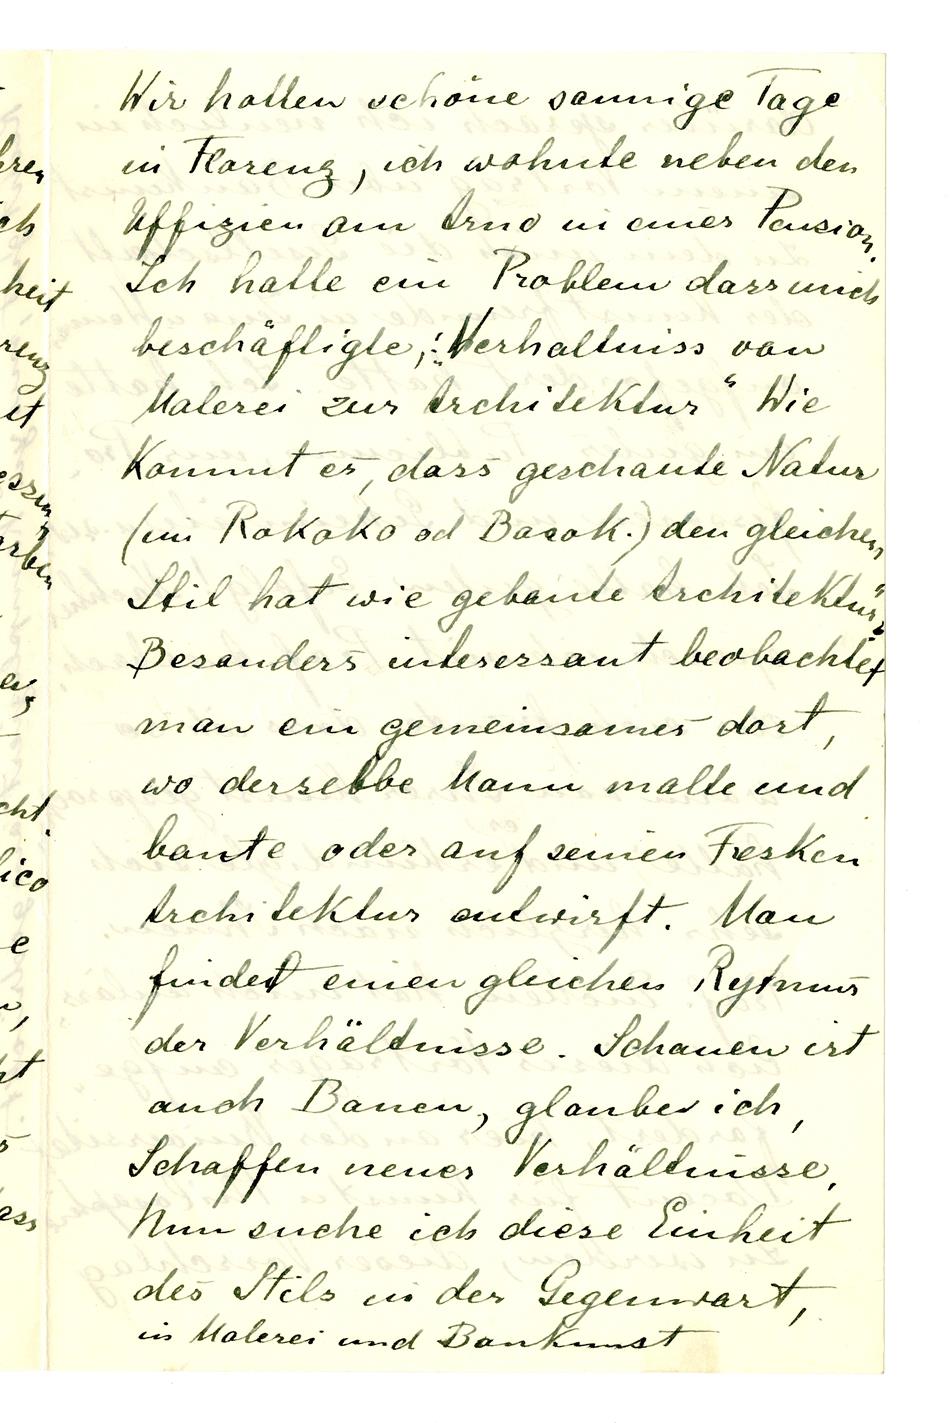 Wir hatten schöne sonnige Tage
in Florenz, ich wohnte neben den
Uffizien am Arno in einer Pension.
Ich hatte ein Problem dass mich
beschäftigte,: „Verhaltniss von
Malerei zur Architektur“ Wie
Kommt es, dass geschaute Natur
(im Rokoko od Barok.) den gleichen
Stil hat wie gebaute Architektur“?
Besonders interessant beobachtet
man ein gemeinsames dort,
wo derselbe Mann malte und
baute oder auf seinen Fresken
Architektur entwirft. Man
findet einen gleichen Rytmus
der Verhältnisse. Schauen ist
auch Bauen, glaube ich,
Schaffen neuer Verhältnisse.
Nun suche ich diese Einheit
des Stils in der Gegenwart,
in Malerei und Baukunst
hren
ich
heit
renz
it
cht.
lico
e